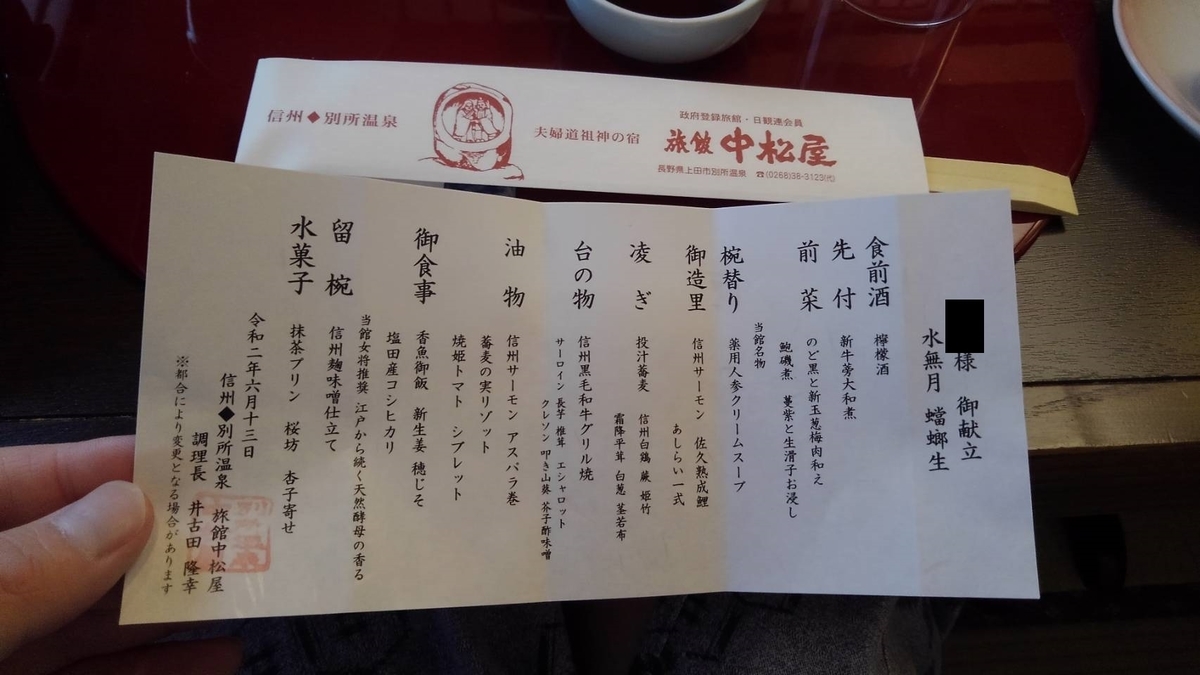 信州◆別所温泉
夫婦道祖神の宿
政府登録旅館・日観連会員
旅館 中松屋
長野県上田市別所温泉 ☎(0268)38-3123(代)
様 御献立
水無月 蟷螂生
食前酒 檸檬酒
先付 新牛蒡大和煮
前菜 のど黒と新玉葱梅肉和え
鮑磯煮 蔓紫と生滑子お浸し
当館名物
椀替り 薬用人参クリームスープ
御造里 信州サーモン 佐久熟成鯉
あしらい一式
凌ぎ 投汁蕎麦 信州白鶏 蕨 姫竹
霜降平茸 白葱 茎若布
台の物 信州黒毛和牛グリル焼
サーロイン 長芋 椎茸 エシャロット
クレソン 叩き山葵 芥子酢味噌
油物 信州サーモン アスパラ巻
蕎麦の実リゾット
焼姫トマト シブレット
御食事 香魚御飯 新生姜 穂じそ
塩田産コシヒカリ
当館女将推奨 江戸から続く天然酵母の香る
留椀 信州麹味噌仕立て
水菓子 抹茶プリン 桜坊 杏子寄せ
令和二年六月十三日
信州◆別所温泉 旅館中松屋
調理長 井古田 隆幸
※都合により変更となる場合があります